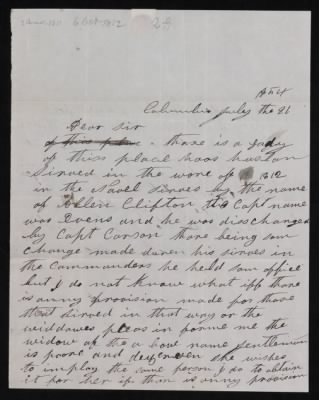 29
1854
Columbia July the 26
Dear Sir
of this place - thare is a lady
of thiss place hoos husban
Sirved in the wore of 1812
in the Navel Sirves by the name
of Allen Clifton his Capt name
was Evens and he was disscharged
by Capt Carson thare being som
change made duren his sirves in
the Commanders he held som office
but I do not know what iff thare
is anny provision made for those
that sirved in that way or the
widdawes pleas in forme me the
widow of the a bove name gentlemin
is poore and she wishes
to imploy the same person I do to obtain
it for her if thare is anny provision